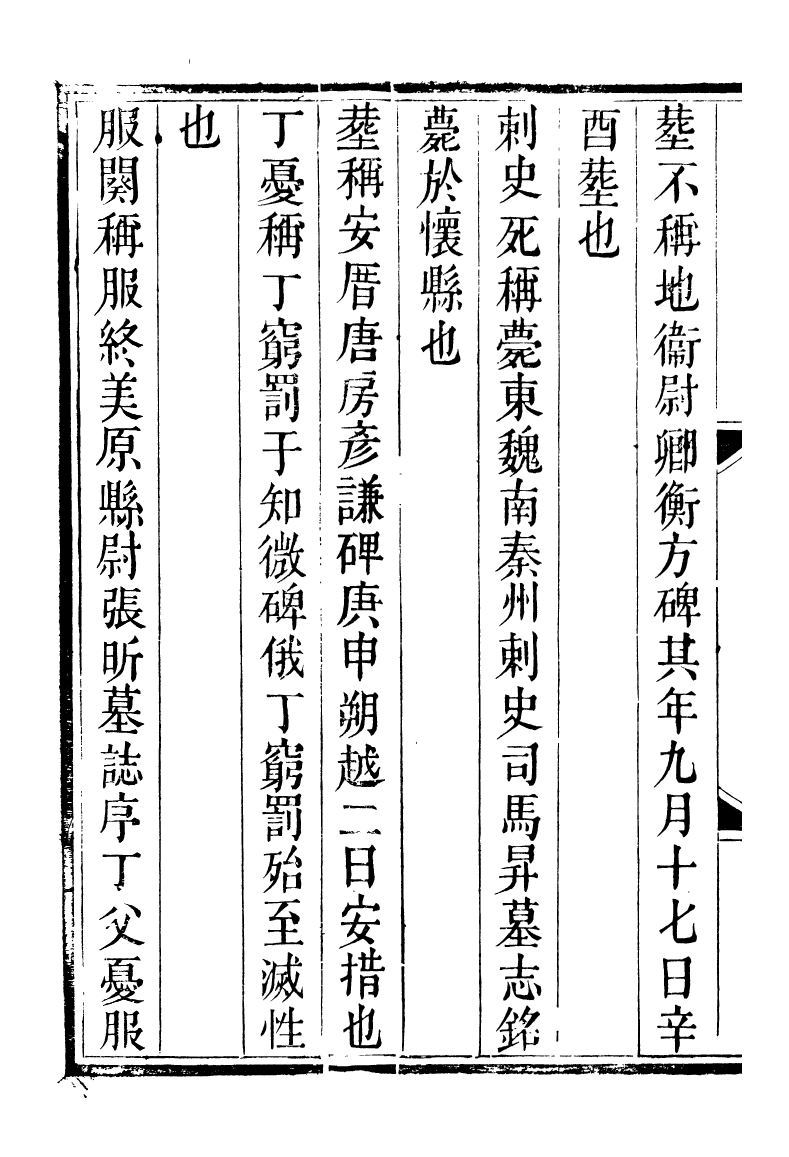 塟不稱地衞尉卿衡方碑其年九月十七日辛
酉塟也
刺史死稱薨東魏南秦州刺史司馬昇墓志銘
薨於懷縣也
塟稱安厝唐房彥謙碑庚申朔越二日安措也
丁憂稱丁窮罰于知微碑俄丁窮罰殆至滅性
也
服闋稱服終美原縣尉張昕墓誌序丁父憂服